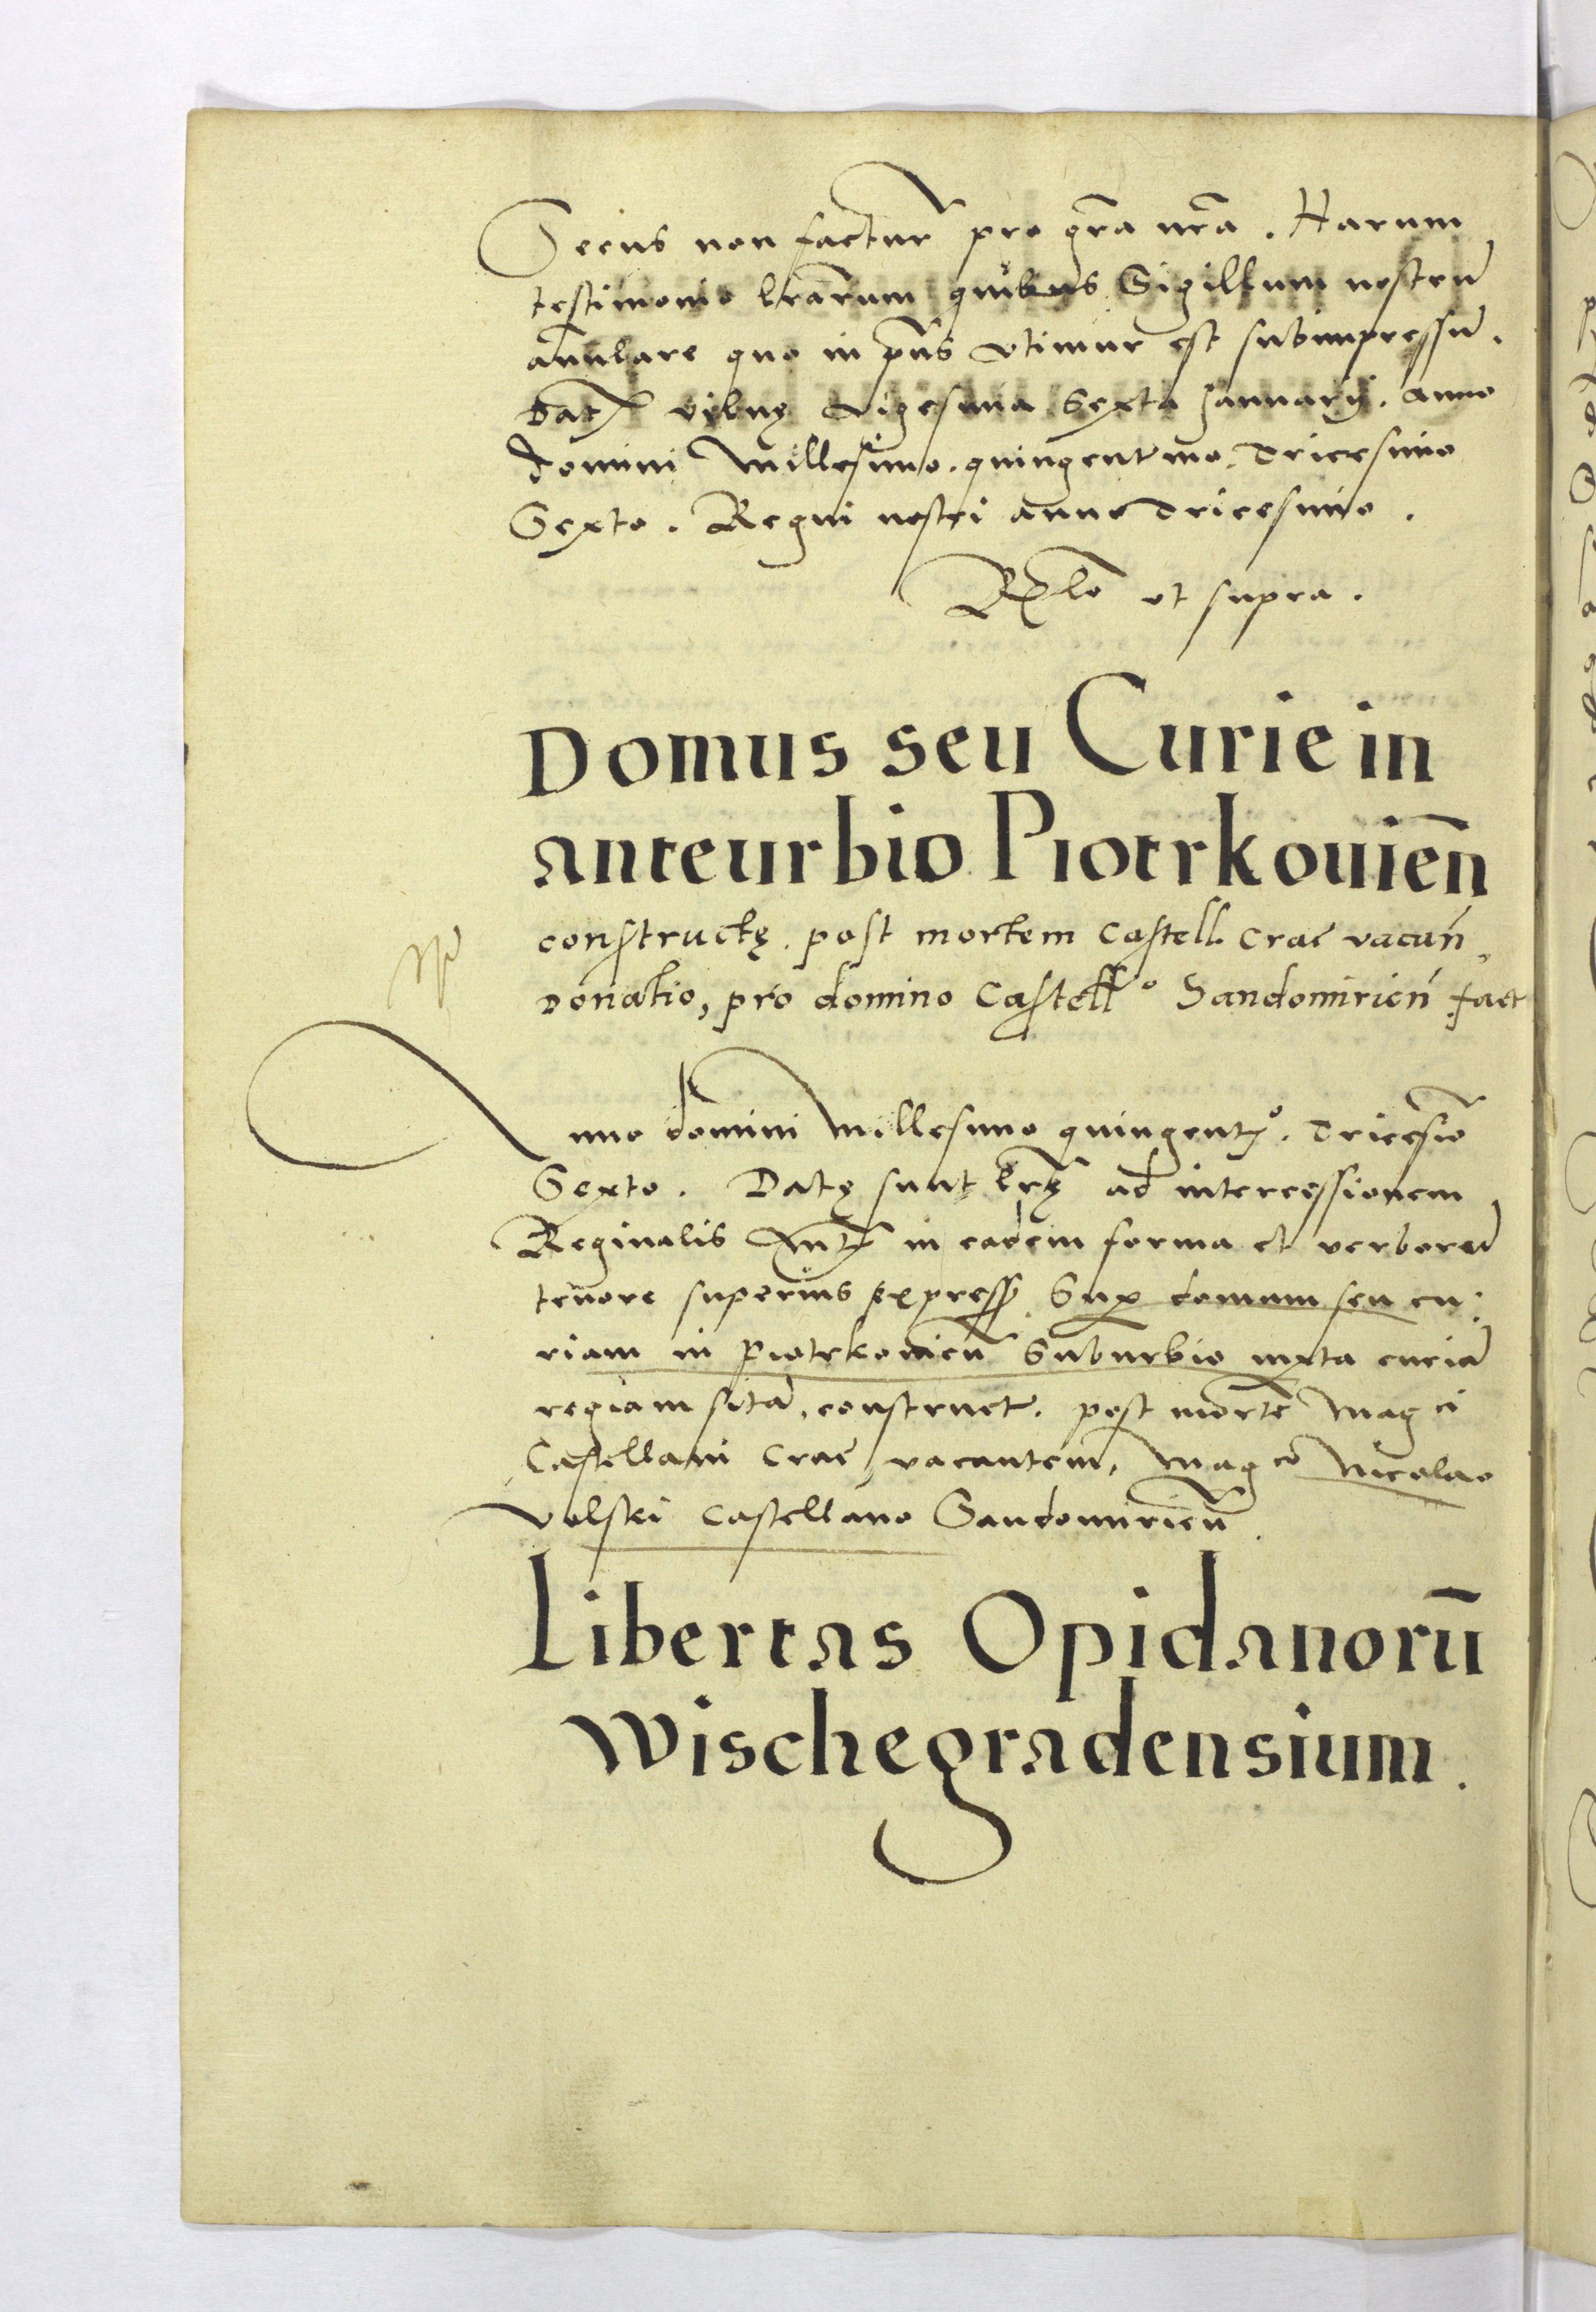 Secus non factur̄ pro gr̄a nr̄a. Harum
testimonio lr̄arum quibus Sigillum nostrū
an̄ulare quo in pn̄s vtimur est subimpressū.
Dat vilnę vigesima Sexta Januarij. Anno
domini Millesimo. quingentmo. Tricesimo
Sexto. Regni nostri anno Tricesimo.
Rlo ut supra.
Domus seu Curie in
anteurbio Piotrkouien̄
constructę. post mortem Castell. Crac̄ vacan̄,
Donatio, pro domino Castellº Sandomirien̄ fact
Anno domini Millesimo quingentº. Tricesīo
Sexto. Datę sunt lr̄ę ad intercessionem
Reginalis Mt in eadem forma et verborū
tenore superius express. Sup domum seu cu:
riam in piotrkouien̄ Suburbio iuxta curiā
regiam sitā, construct. post mortē Magci
Castellani Crac̄ vacantem, Magco Nicolao
Volski Castellano Sandomirien̄.
Libertas Opidanorū
Wischegradensium.